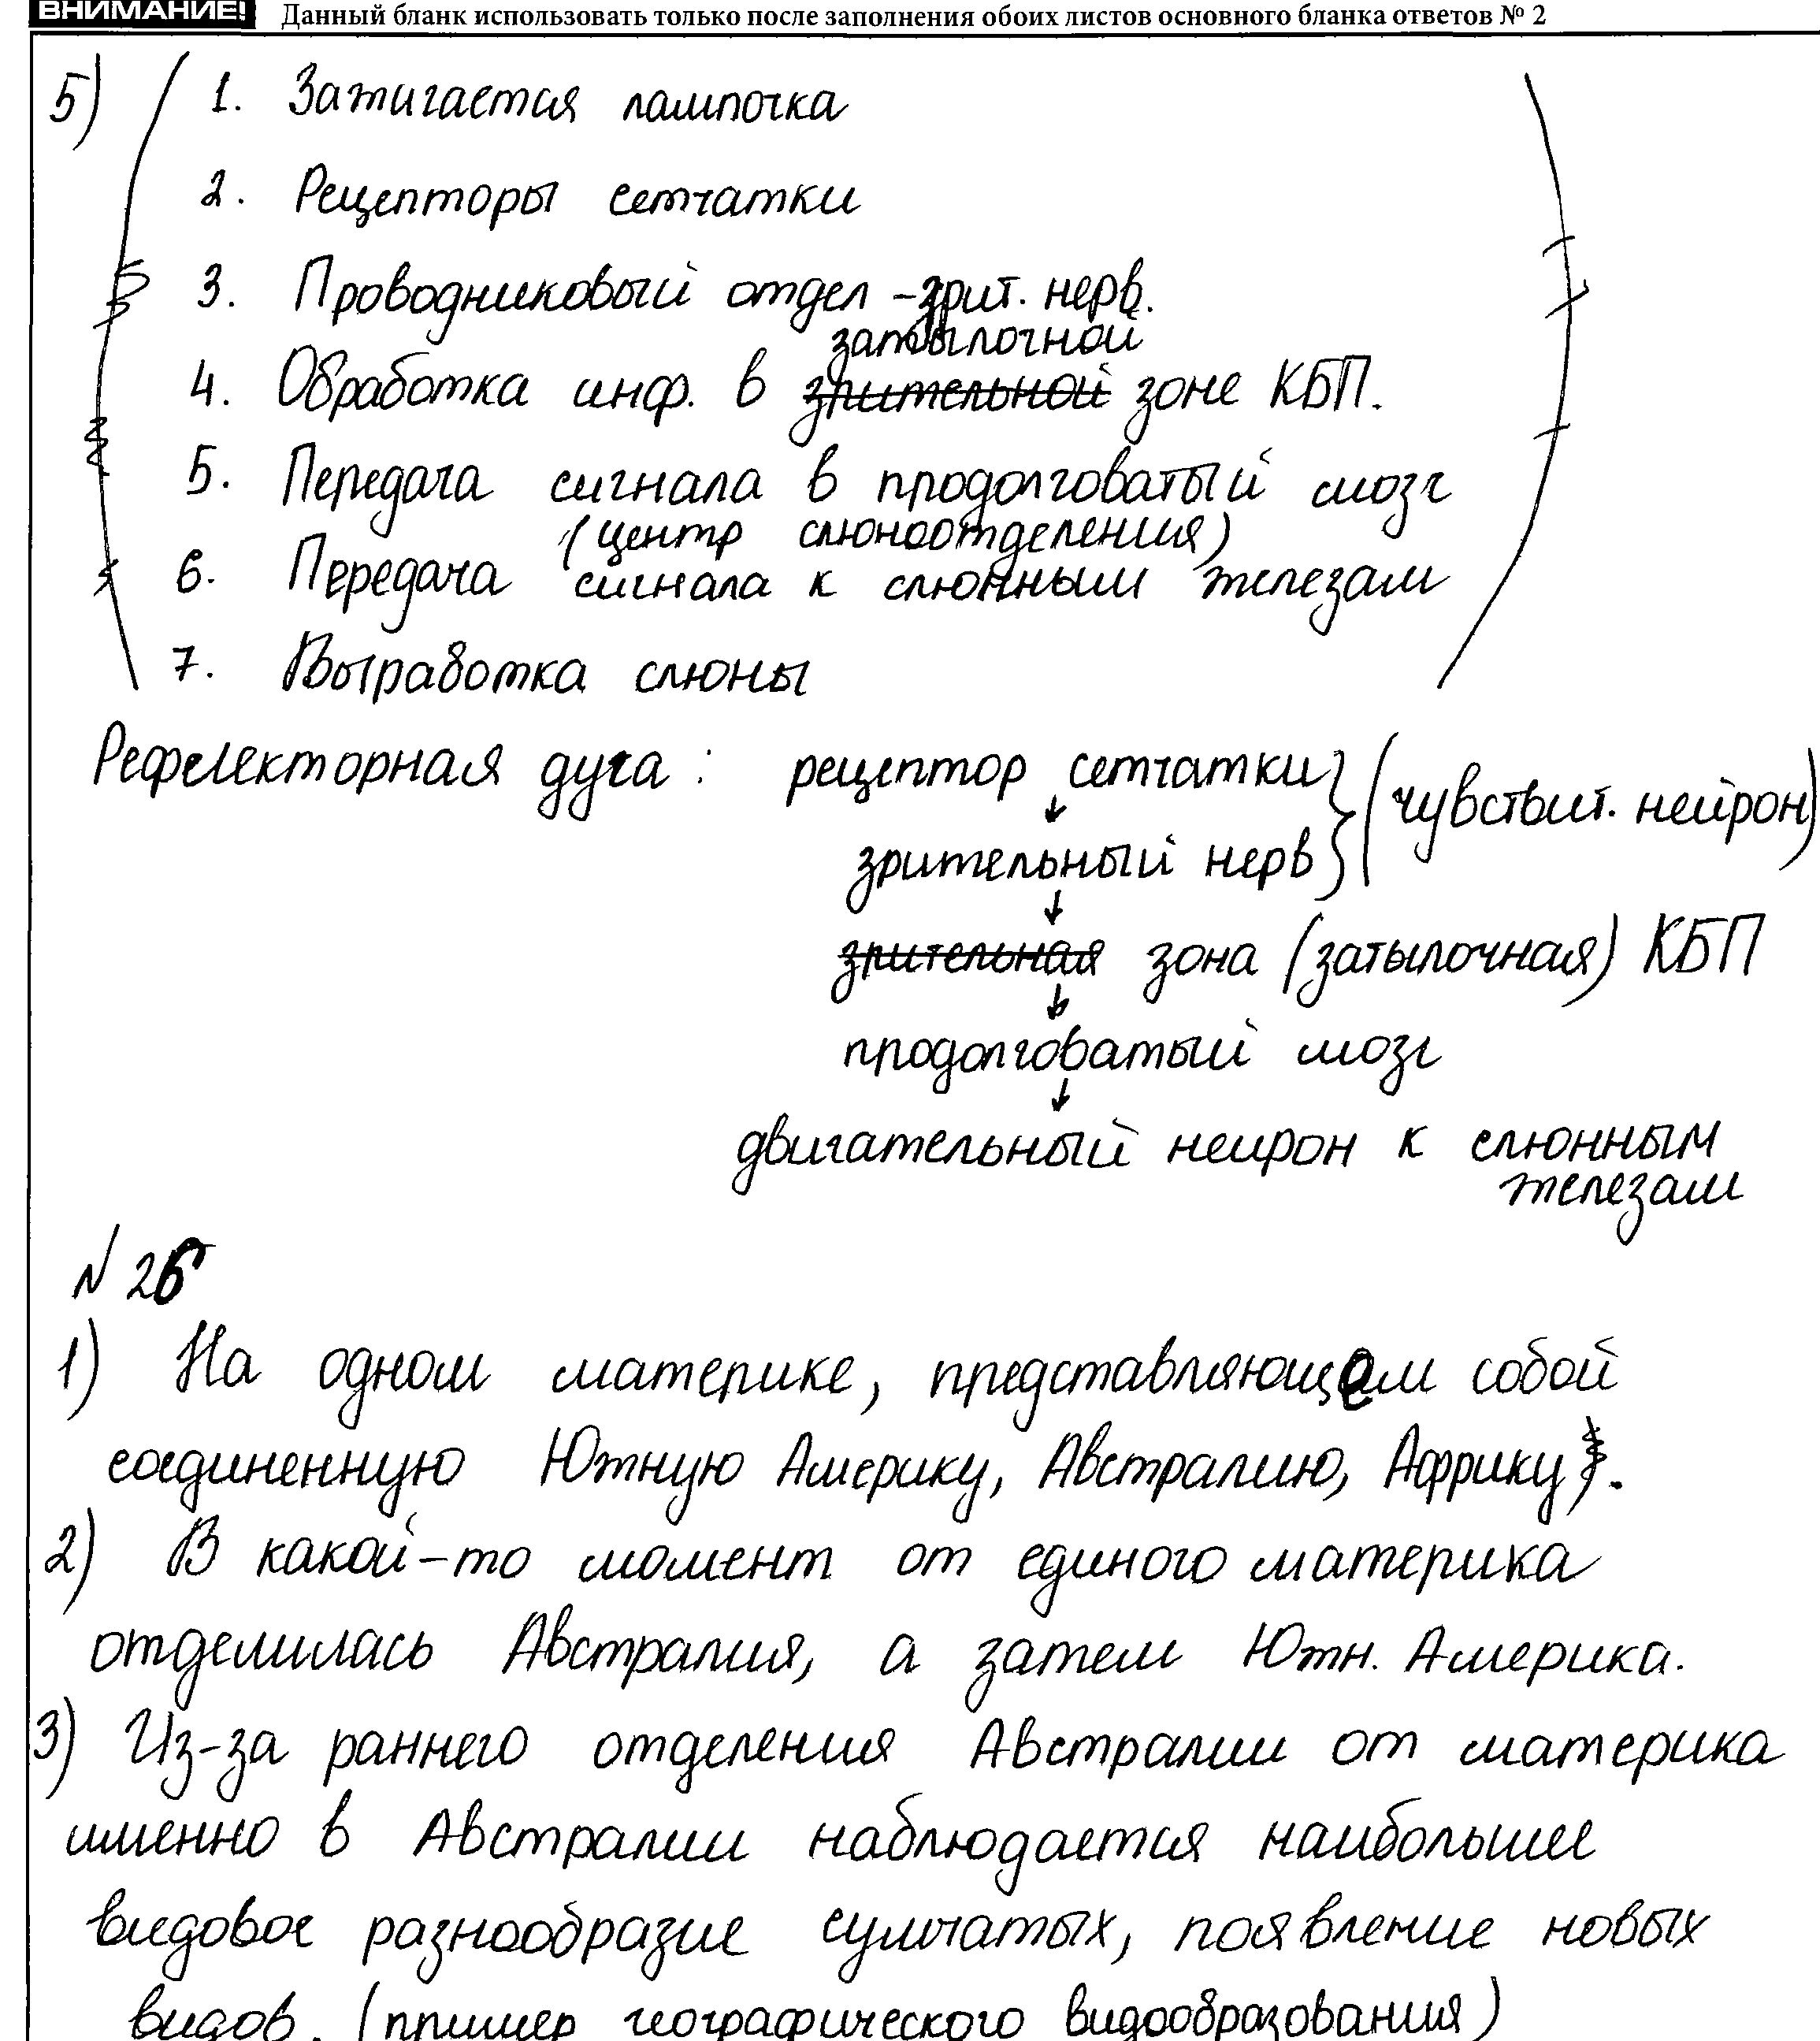 ВНИМАНИЕ! Данный бланк использовать только после заполнения обоих листов основного бланка ответов № 2
5) ( 1. Зажигается лампочка
2. Рецепторы сетчатки
3. Проводниковый отдел - зрит. нерв.
затылочной
4. Обработка инф. в зрительной зоне КБП.
5. Передача сигнала в продолговатый мозг
(центр слюноотделения)
6. Передача сигнала к слюнным железам
7. Выработка слюны )
Рефлекторная дуга: рецептор сетчатки } (чувствит. нейрон)
↓
зрительный нерв
↓
зрительная зона (затылочная) КБП
↓
продолговатый мозг
↓
двигательный нейрон к слюнным
железам
№ 26
1) На одном материке, представляющем собой
соединенную Южную Америку, Австралию, Африку.
2) В какой-то момент от единого материка
отделилась Австралия, а затем Южн. Америка.
3) Из-за раннего отделения Австралии от материка
именно в Австралии наблюдается наибольшее
видовое разнообразие сумчатых, появление новых
видов. (пример географического видообразования)